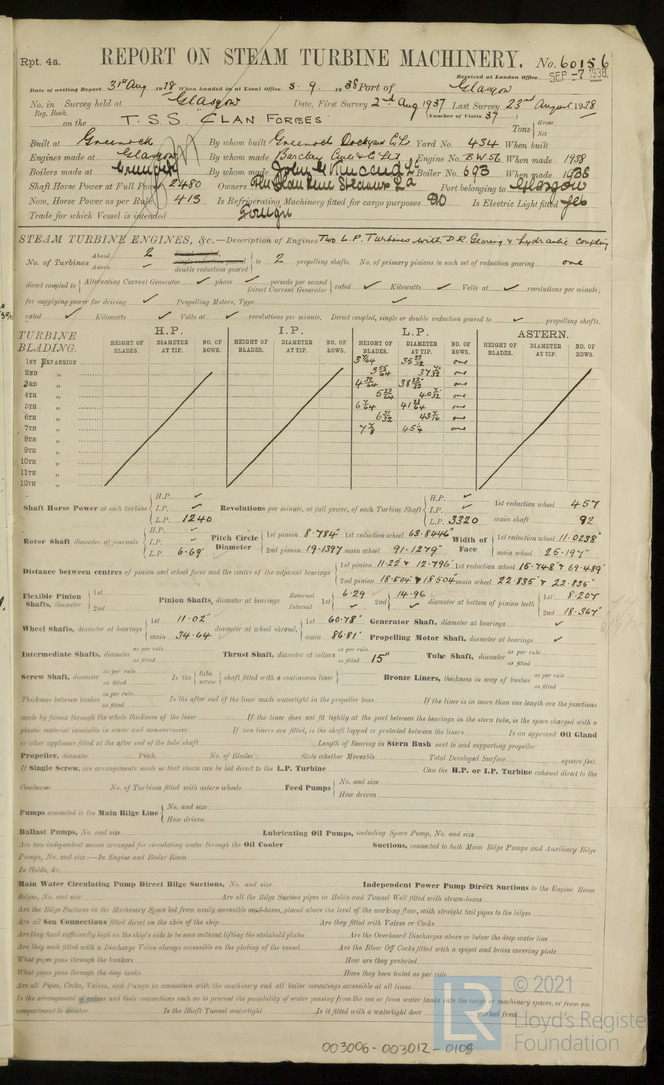 Rpt. 4a. REPORT ON STEAM TURBINE MACHINERY. No. 60156
Received at London Office SEP -7 1938
Date of writing Report 31st Aug 1938 When handed in at Local Office 3. 9. 1938 Port of Glasgow
No. in Survey held at Glasgow Date, First Survey 2nd Aug 1937 Last Survey 23rd August 1938
Reg. Book. (Number of Visits 37)
on the T.S.S "CLAN FORBES" Tons Gross Net
Built at Greenock By whom built Greenock Dockyard Co Ld Yard No. 434 When built
Engines made at Glasgow By whom made Barclay Curle & Co Ltd Engine No. BW52 When made 1938
Boilers made at By whom made John G Kincaid Boiler No. 693 When made 1938
Shaft Horse Power at Full Power 2480 Owners The Clan Line Steamers Ld Port belonging to Glasgow
Nom. Horse Power as per Rule 413 Is Refrigerating Machinery fitted for cargo purposes Is Electric Light fitted Yes
Trade for which Vessel is intended Foreign
STEAM TURBINE ENGINES, &c.—Description of Engines Two L.P. Turbines with D.R. Gearing & hydraulic coupling
No. of Turbines Ahead 2 Astern direct coupled, single reduction geared double reduction geared to 2 propelling shafts. No. of primary pinions to each set of reduction gearing one
direct coupled to Alternating Current Generator phase periods per second Direct Current Generator rated Kilowatts Volts at revolutions per minute;
for supplying power for driving Propelling Motors, Type
rated Kilowatts Volts at revolutions per minute. Direct coupled, single or double reduction geared to propelling shafts.
TURBINE BLADING. H.P. I.P. L.P. ASTERN.
HEIGHT OF BLADES. DIAMETER AT TIP. NO. OF ROWS. HEIGHT OF BLADES. DIAMETER AT TIP. NO. OF ROWS. HEIGHT OF BLADES. DIAMETER AT TIP. NO. OF ROWS. HEIGHT OF BLADES. DIAMETER AT TIP. NO. OF ROWS.
1ST EXPANSION one
2ND " one
3RD " one
4TH " one
5TH " one
6TH " one
7TH " 7 7/8 one
8TH "
9TH "
10TH "
11TH "
12TH "
Shaft Horse Power at each turbine H.P. I.P. L.P. 1240 Revolutions per minute, at full power, of each Turbine Shaft H.P. I.P. L.P. 3320 1st reduction wheel 457 main shaft 92
Rotor Shaft diameter at journals H.P. I.P. L.P. 6.69" Pitch Circle Diameter 1st pinion 8.784" 1st reduction wheel 63.8446" 2nd pinion 19.1397 main wheel 91.1279" Width of Face 1st reduction wheel 11.0238" main wheel 25.197"
Distance between centres of pinion and wheel faces and the centre of the adjacent bearings 1st pinion 11.22 & 12.796" 1st reduction wheel 15.748 & 69.489"
2nd pinion 18.504 & 18.504" main wheel 22.835 & 22.835"
Flexible Pinion Shafts, diameter 1st 2nd Pinion Shafts, diameter at bearings External 1st 6.29 2nd 14.96 Internal diameter at bottom of pinion teeth 1st 8.207 2nd 18.367"
Wheel Shafts, diameter at bearings 1st 11.02" main 34.64 diameter at wheel shroud, 1st 60.78" main 86.81" Generator Shaft, diameter at bearings Propelling Motor Shaft, diameter at bearings
Intermediate Shafts, diameter as per rule as fitted Thrust Shaft, diameter at collars as per rule as fitted 15" Tube Shaft, diameter as per rule as fitted
Screw Shaft, diameter as per rule as fitted Is the tube screw shaft fitted with a continuous liner Bronze Liners, thickness in way of bushes as per rule as fitted
Thickness between bushes as per rule as fitted Is the after end of the liner made watertight in the propeller boss If the liner is in more than one length are the junctions
made by fusion through the whole thickness of the liner If the liner does not fit tightly at the part between the bearings in the stern tube, is the space charged with a
plastic material insoluble in water and non-corrosive If two liners are fitted, is the shaft lapped or protected between the liners Is an approved Oil Gland
or other appliance fitted at the after end of the tube shaft Length of Bearing in Stern Bush next to and supporting propeller
Propeller, diameter Pitch No. of Blades State whether Moveable Total Developed Surface square feet.
If Single Screw, are arrangements made so that steam can be led direct to the L.P. Turbine Can the H.P. or I.P. Turbine exhaust direct to the
Condenser No. of Turbines fitted with astern wheels Feed Pumps No. and size How driven
Pumps connected to the Main Bilge Line No. and size How driven
Ballast Pumps, No. and size Lubricating Oil Pumps, including Spare Pump, No. and size
Are two independent means arranged for circulating water through the Oil Cooler Suctions, connected to both Main Bilge Pumps and Auxiliary Bilge
Pumps, No. and size:—In Engine and Boiler Room
In Holds, &c.
Main Water Circulating Pump Direct Bilge Suctions, No. and size Independent Power Pump Direct Suctions to the Engine Room
Bilges, No. and size Are all the Bilge Suction pipes in Holds and Tunnel Well fitted with strum-boxes
Are the Bilge Suctions in the Machinery Space led from easily accessible mud-boxes, placed above the level of the working floor, with straight tail pipes to the bilges
Are all Sea Connections fitted direct on the skin of the ship Are they fitted with Valves or Cocks
Are they fixed sufficiently high on the ship's side to be seen without lifting the stokehold plates Are the Overboard Discharges above or below the deep water line
Are they each fitted with a Discharge Valve always accessible on the plating of the vessel Are the Blow Off Cocks fitted with a spigot and brass covering plate
What pipes pass through the bunkers How are they protected
What pipes pass through the deep tanks Have they been tested as per rule
Are all Pipes, Cocks, Valves, and Pumps in connection with the machinery and all boiler mountings accessible at all times
Is the arrangement of valves and their connections such as to prevent the possibility of water passing from the sea or from water tanks into the cargo or machinery spaces, or from one
compartment to another Is the Shaft Tunnel watertight Is it fitted with a watertight door worked from
LR © 2021 Lloyd's Register Foundation
003006-003012-0108